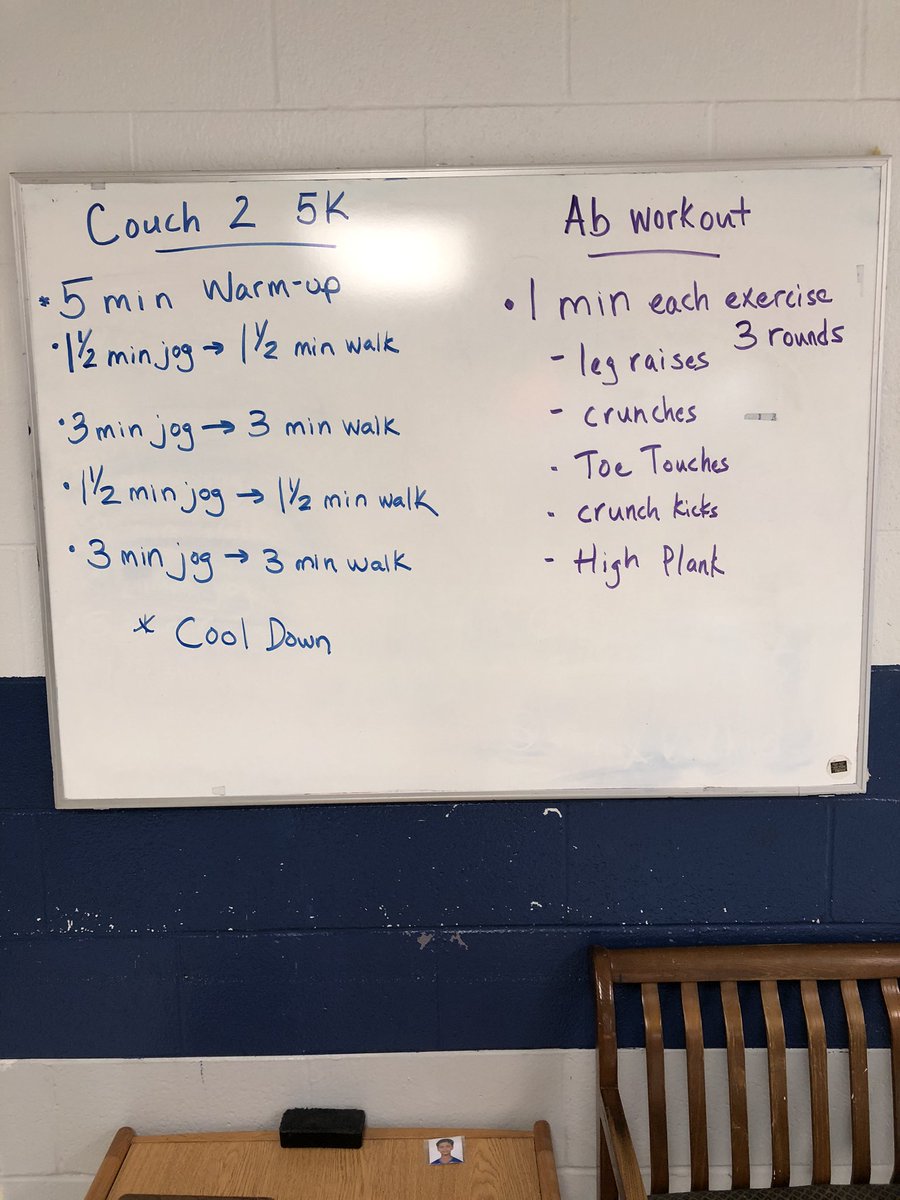 Couch 2 5K
* 5 min Warm-up
• 1 1/2 min jog → 1 1/2 min walk
• 3 min jog → 3 min walk
• 1 1/2 min jog → 1 1/2 min walk
• 3 min jog → 3 min walk
* Cool Down
Ab workout
• 1 min each exercise
3 rounds
- leg raises
- crunches
- Toe Touches
- crunch kicks
- High Plank